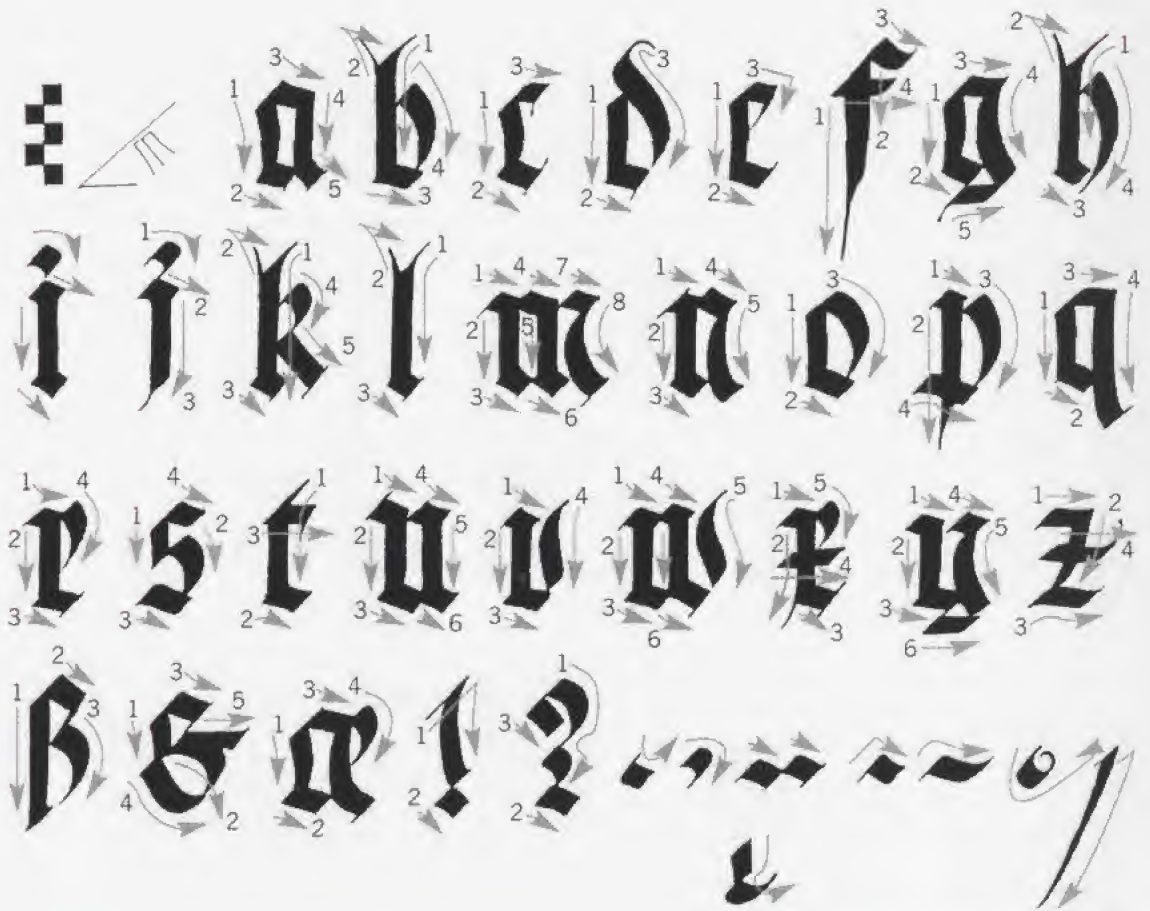 a b c d e f g h
i j k l m n o p q
r s t u v w x y z
ß & æ ! ?